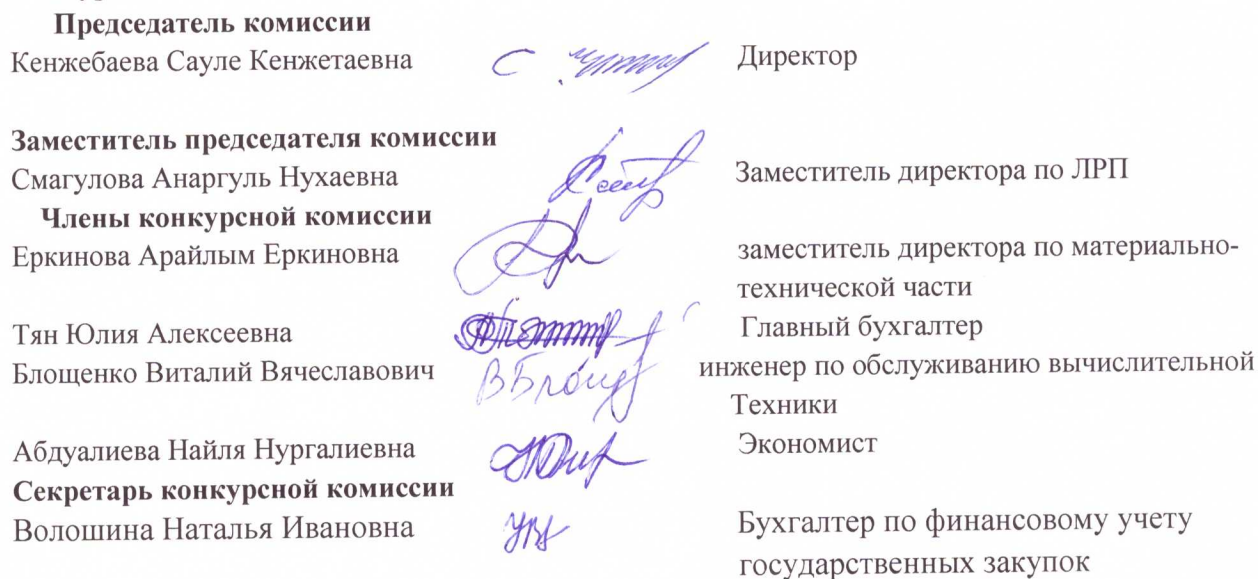 Председатель комиссии
Кенжебаева Сауле Кенжетаевна Директор
Заместитель председателя комиссии
Смагулова Анаргуль Нухаевна Заместитель директора по ЛРП
Члены конкурсной комиссии
Еркинова Арайлым Еркиновна заместитель директора по материально-
технической части
Тян Юлия Алексеевна Главный бухгалтер
Блощенко Виталий Вячеславович инженер по обслуживанию вычислительной
Техники
Абдуалиева Найля Нургалиевна Экономист
Секретарь конкурсной комиссии
Волошина Наталья Ивановна Бухгалтер по финансовому учету
государственных закупок